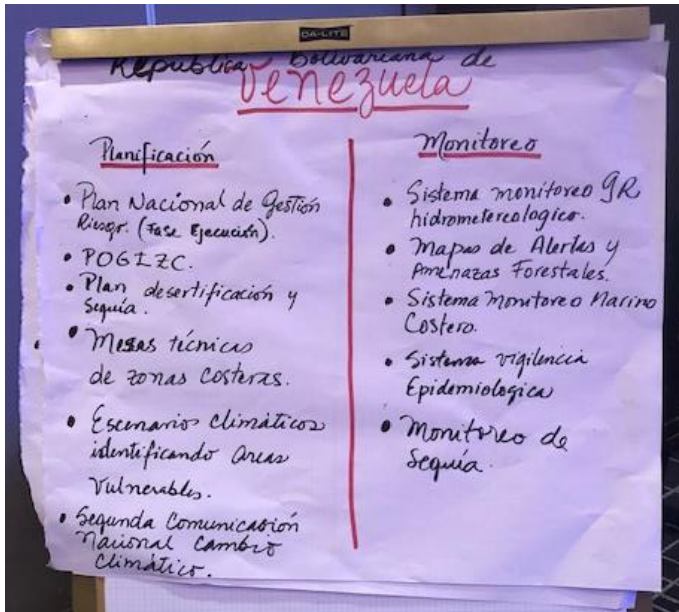 DA-LITE
República Bolivariana de
Venezuela
Planificación
• Plan Nacional de Gestión
Riesgo. (Fase Ejecución).
• POGIZC.
• Plan desertificación y
Sequía.
• Mesas técnicas
de zonas costeras.
• Escenarios climáticos
identificando areas
Vulnerables.
• Segunda Comunicación
Nacional Cambio
Climático.
Monitoreo
• Sistema monitoreo GR
hidrometereologico.
• Mapas de Alertas y
Amenazas Forestales.
• Sistema Monitoreo Marino
Costero.
• Sistema vigilencia
Epidemiologica
• Monitoreo de
Sequía.